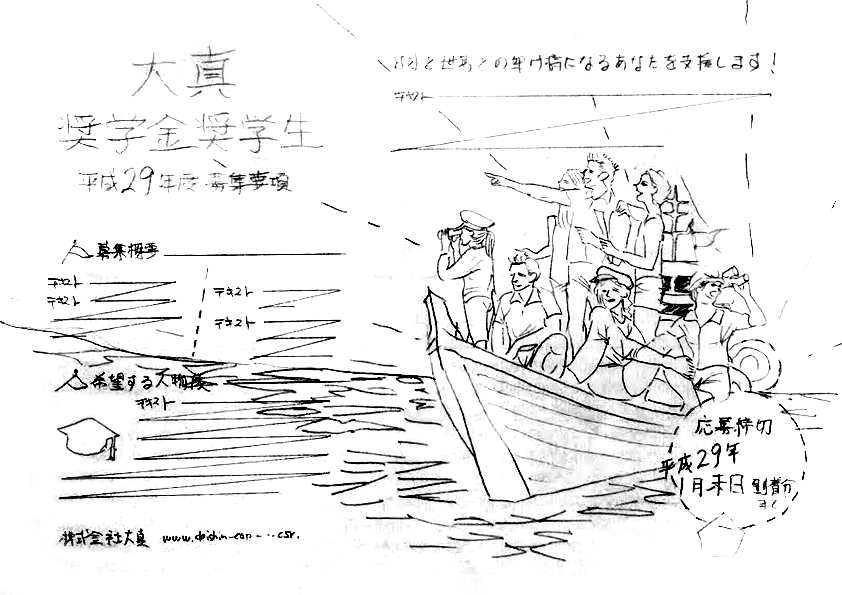 大真
奨学金奨学生
平成29年度 募集要項
日本と世界との架け橋になるあなたを支援します!
テキスト
募集概要
テキスト
テキスト
テキスト
テキスト
希望する人物像
テキスト
応募締切
平成29年
1月末日到着分
まで
株式会社大真 www.daishin-cop-・・・csr.